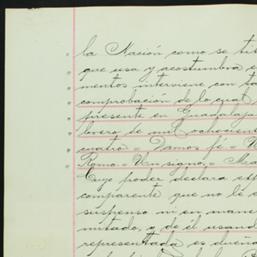 la Nación como se ti
que usa y acostumbra e
mentos interviene con ta
comprobación de lo cual
presente en Guadalaja
brero de mil ochocient
cuatro = Damos fe =
Rgmo = Un signo = Ma
Cuyo poder declara el
compareciente que no le
suspenso ni en mane
mitado, y de él usand
representada es dueña